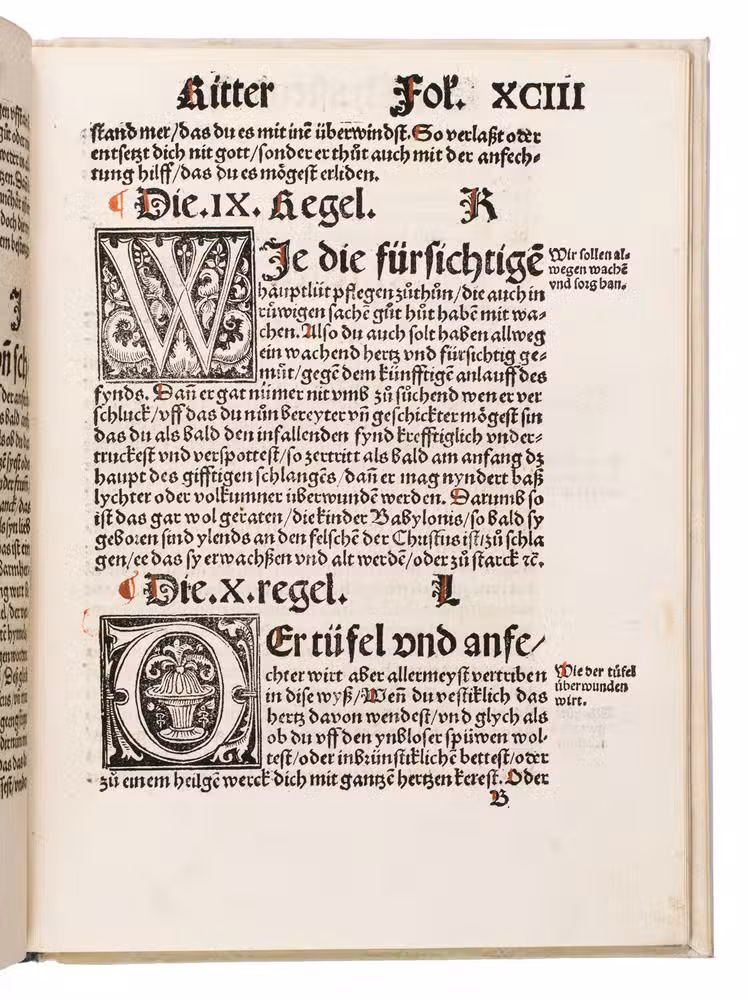 Ritter Fol. XCIII
stand mer/das du es mit inē überwindst. So verlaßt oder
entsetzt dich nit gott/sonder er thůt auch mit der anfech-
tung hilff/das du es mögest erliden.
¶ Die.IX. Regel. K
WJe die fürsichtigē
hauptlüt pflegen zůthůn/die auch in
růwigen sachē gůt hůt habē mit wa-
chen. Also du auch solt haben allweg
ein wachend hertz vnd fürsichtig ge-
můt/gegē dem künfftigē anlauff des
fynds. Dañ er gat nümer nit vmb zů sůchend wen er ver
schluck/vff das du nůn bereyter vñ geschickter mögest sin
das du als bald den infallenden fynd krefftiglich vnder-
truckest vnd verspottest/so zertritt als bald am anfang dz
haupt des gifftigen schlangēs/dañ er mag nyndert baß
lychter oder volkumner überwundē werden. Darumb so
ist das gar wol geraten/die kinder Babylonis/so bald sy
geboren sind ylends an den felschē der Christus ist/zů schla
gen/ee das sy erwachßen vnd alt werdē/oder zů starck ꝛc̄.
Wir sollen al-
wegen wachē
vnd sorg han.
¶ Die.X.regel. L
DEr tüfel vnd anfe/
chter wirt aber allermeyst vertriben
in dise wyß/Weñ du vestiklich das
hertz davon wendest/vnd glych als
ob du vff den ynbloser spüwen wol
test/oder inbrünstiklichē bettest/oder
zů einem heilgē werck dich mit gantzē hertzen kerest. Oder
Wie der tüfel
überwunden
wirt.
B